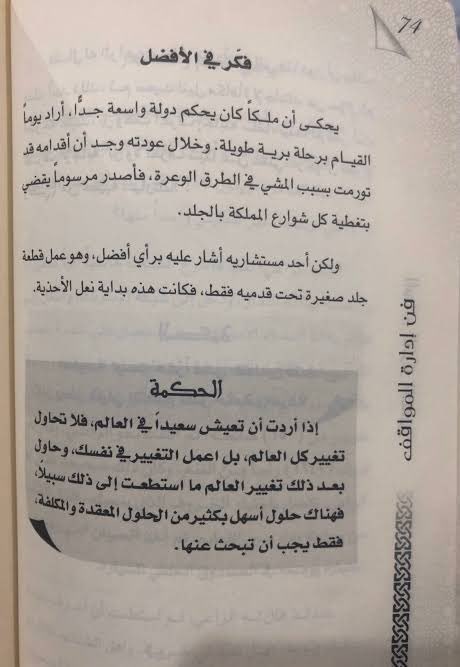 74
فكّر في الأفضل
يحكى أن ملكاً كان يحكم دولة واسعة جداً، أراد يوماً
القيام برحلة برية طويلة. وخلال عودته وجد أن أقدامه قد
تورمت بسبب المشي في الطرق الوعرة، فأصدر مرسوماً يقضي
بتغطية كل شوارع المملكة بالجلد.
ولكن أحد مستشاريه أشار عليه برأي أفضل، وهو عمل قطعة
جلد صغيرة تحت قدميه فقط، فكانت هذه بداية نعل الأحذية.
الحكمة
إذا أردت أن تعيش سعيداً في العالم، فلا تحاول
تغيير كل العالم، بل اعمل التغيير في نفسك، وحاول
بعد ذلك تغيير العالم ما استطعت إلى ذلك سبيلاً،
فهناك حلول أسهل بكثير من الحلول المعقدة والمكلفة،
فقط يجب أن تبحث عنها.
فن إدارة المواقف